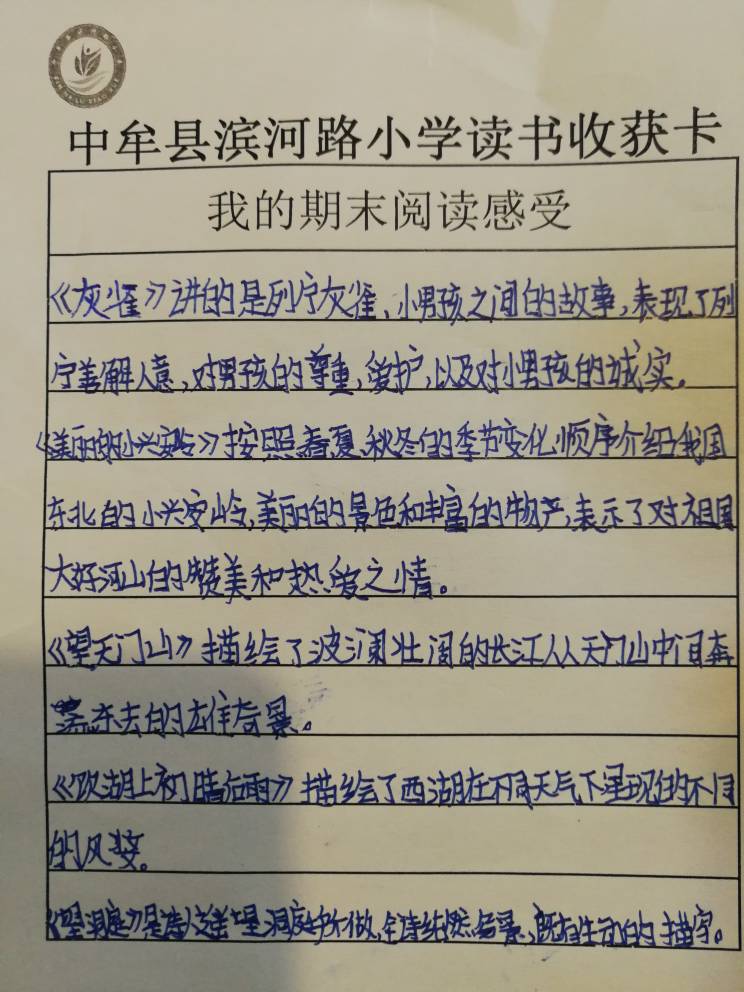 中牟县滨河路小学读书收获卡
我的期末阅读感受
《灰雀》讲的是列宁灰雀、小男孩之间的故事,表现了列
宁善解人意,对男孩的尊重,爱护,以及对小男孩的诚实。
《美丽的小兴安岭》按照春夏秋冬的季节变化顺序介绍我国
东北的小兴安岭,美丽的景色和丰富的物产,表示了对祖国
大好河山的赞美和热爱之情。
《望天门山》描绘了波澜壮阔的长江从天门山中间奔
东去的奇景。
《饮湖上初晴后雨》描绘了西湖在不同天气下呈现的不同
的风姿。
《望洞庭》是诗人遥望洞庭所做,全诗纯然写景,既有生动的描写。